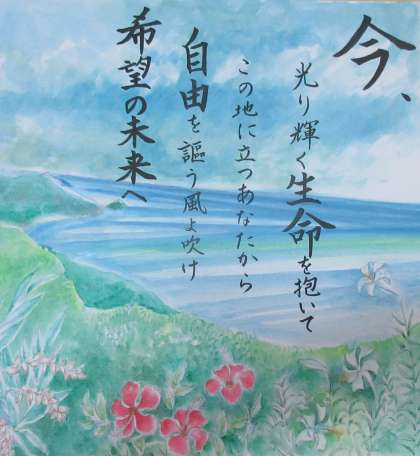 今、
光り輝く生命を抱いて
この地に立つあなたから
自由を謳う風よ吹け
希望の未来へ